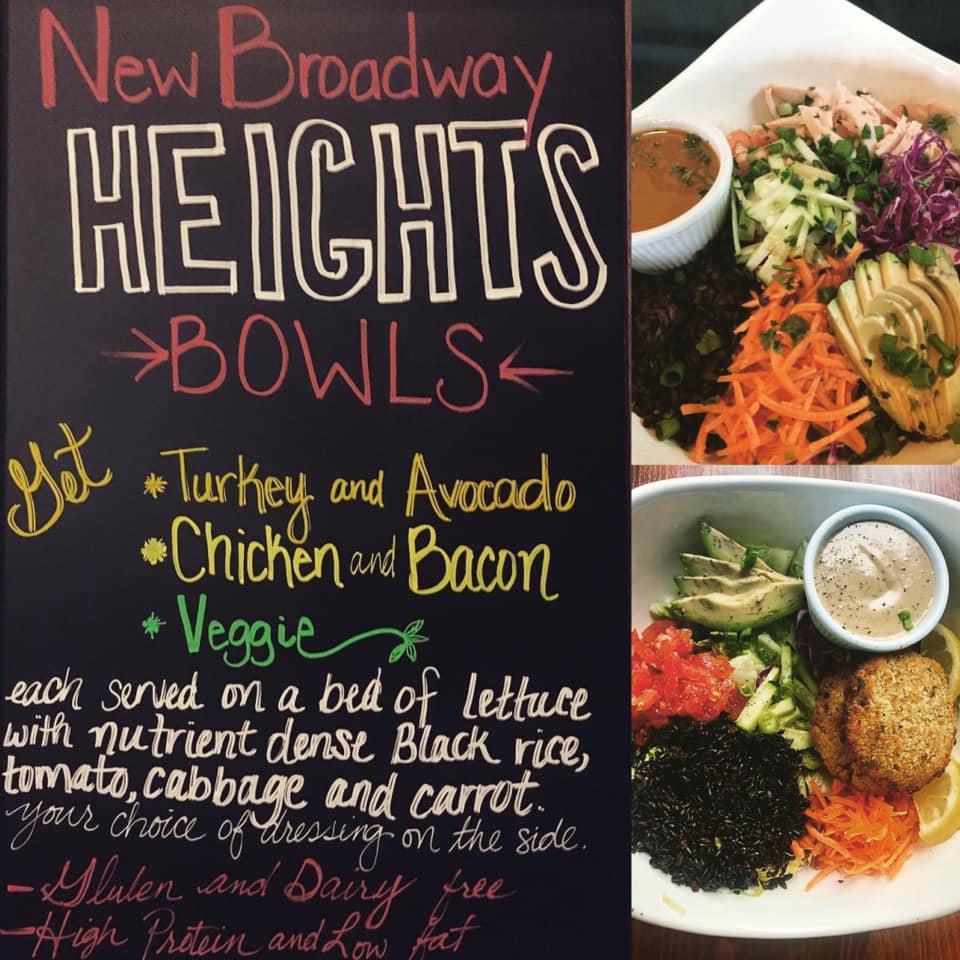 New Broadway
HEIGHTS
→BOWLS←
Get *Turkey and Avocado
*Chicken and Bacon
*Veggie
each served on a bed of lettuce
with nutrient dense Black rice,
tomato, cabbage and carrot..
your choice of dressing on the side.
- Gluten and Dairy free
- High Protein and Low fat